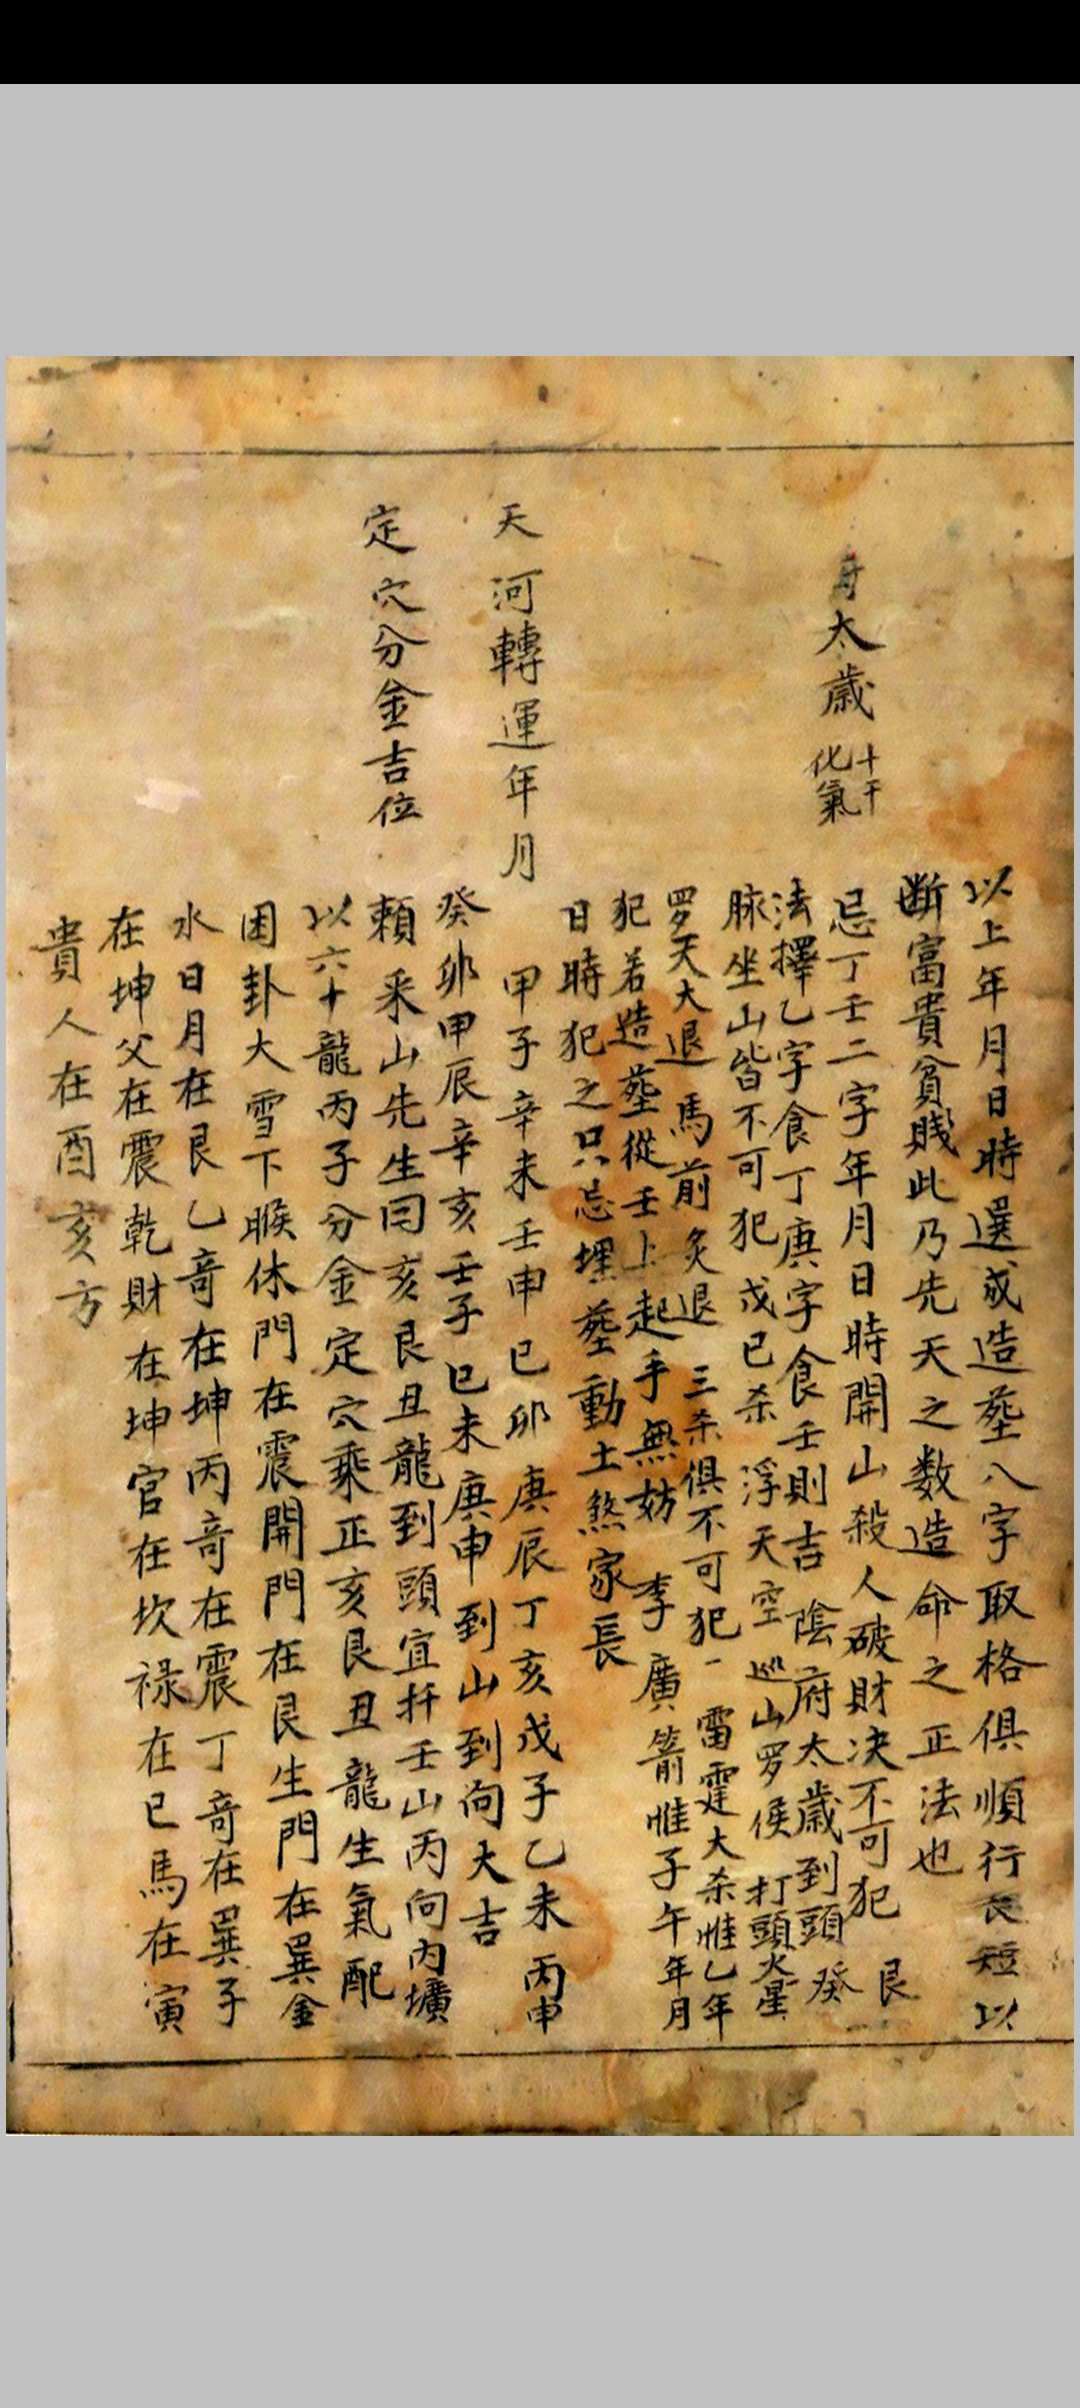 以上年月日時選成造塟八字取格俱順行長短以
断富貴貧賎此乃先天之数造命之正法也
太歲 十干化氣
忌丁壬二字年月日時開山殺人破財决不可犯 艮
法擇乙字食丁庚字食壬則吉 陰府太歲到頭 癸
脉坐山皆不可犯 戊已杀 浮天空 巡山罗侯 打頭火星
罗天大退 馬前炙退 三杀俱不可犯一 雷霆大杀惟乙年
犯若造塟從壬上起手無妨 李廣箭惟子午年月
日時犯之只忌埋塟動土煞家長
天河轉運年月
甲子辛未壬申已卯 庚辰丁亥戊子乙未丙申
癸卯甲辰辛亥壬子已未庚申到山到向大吉
定穴分金吉位
賴釆山先生曰亥艮丑龍到頭宜扦壬山丙向内壙
以六十龍丙子分金定穴乘正亥艮丑龍生氣配
困卦大雪下𠋫休門在震開門在艮生門在巽金
水日月在艮乙竒在坤丙竒在震丁竒在巽子
在坤父在震乾財在坤官在坎禄在已馬在寅
貴人在酉亥方